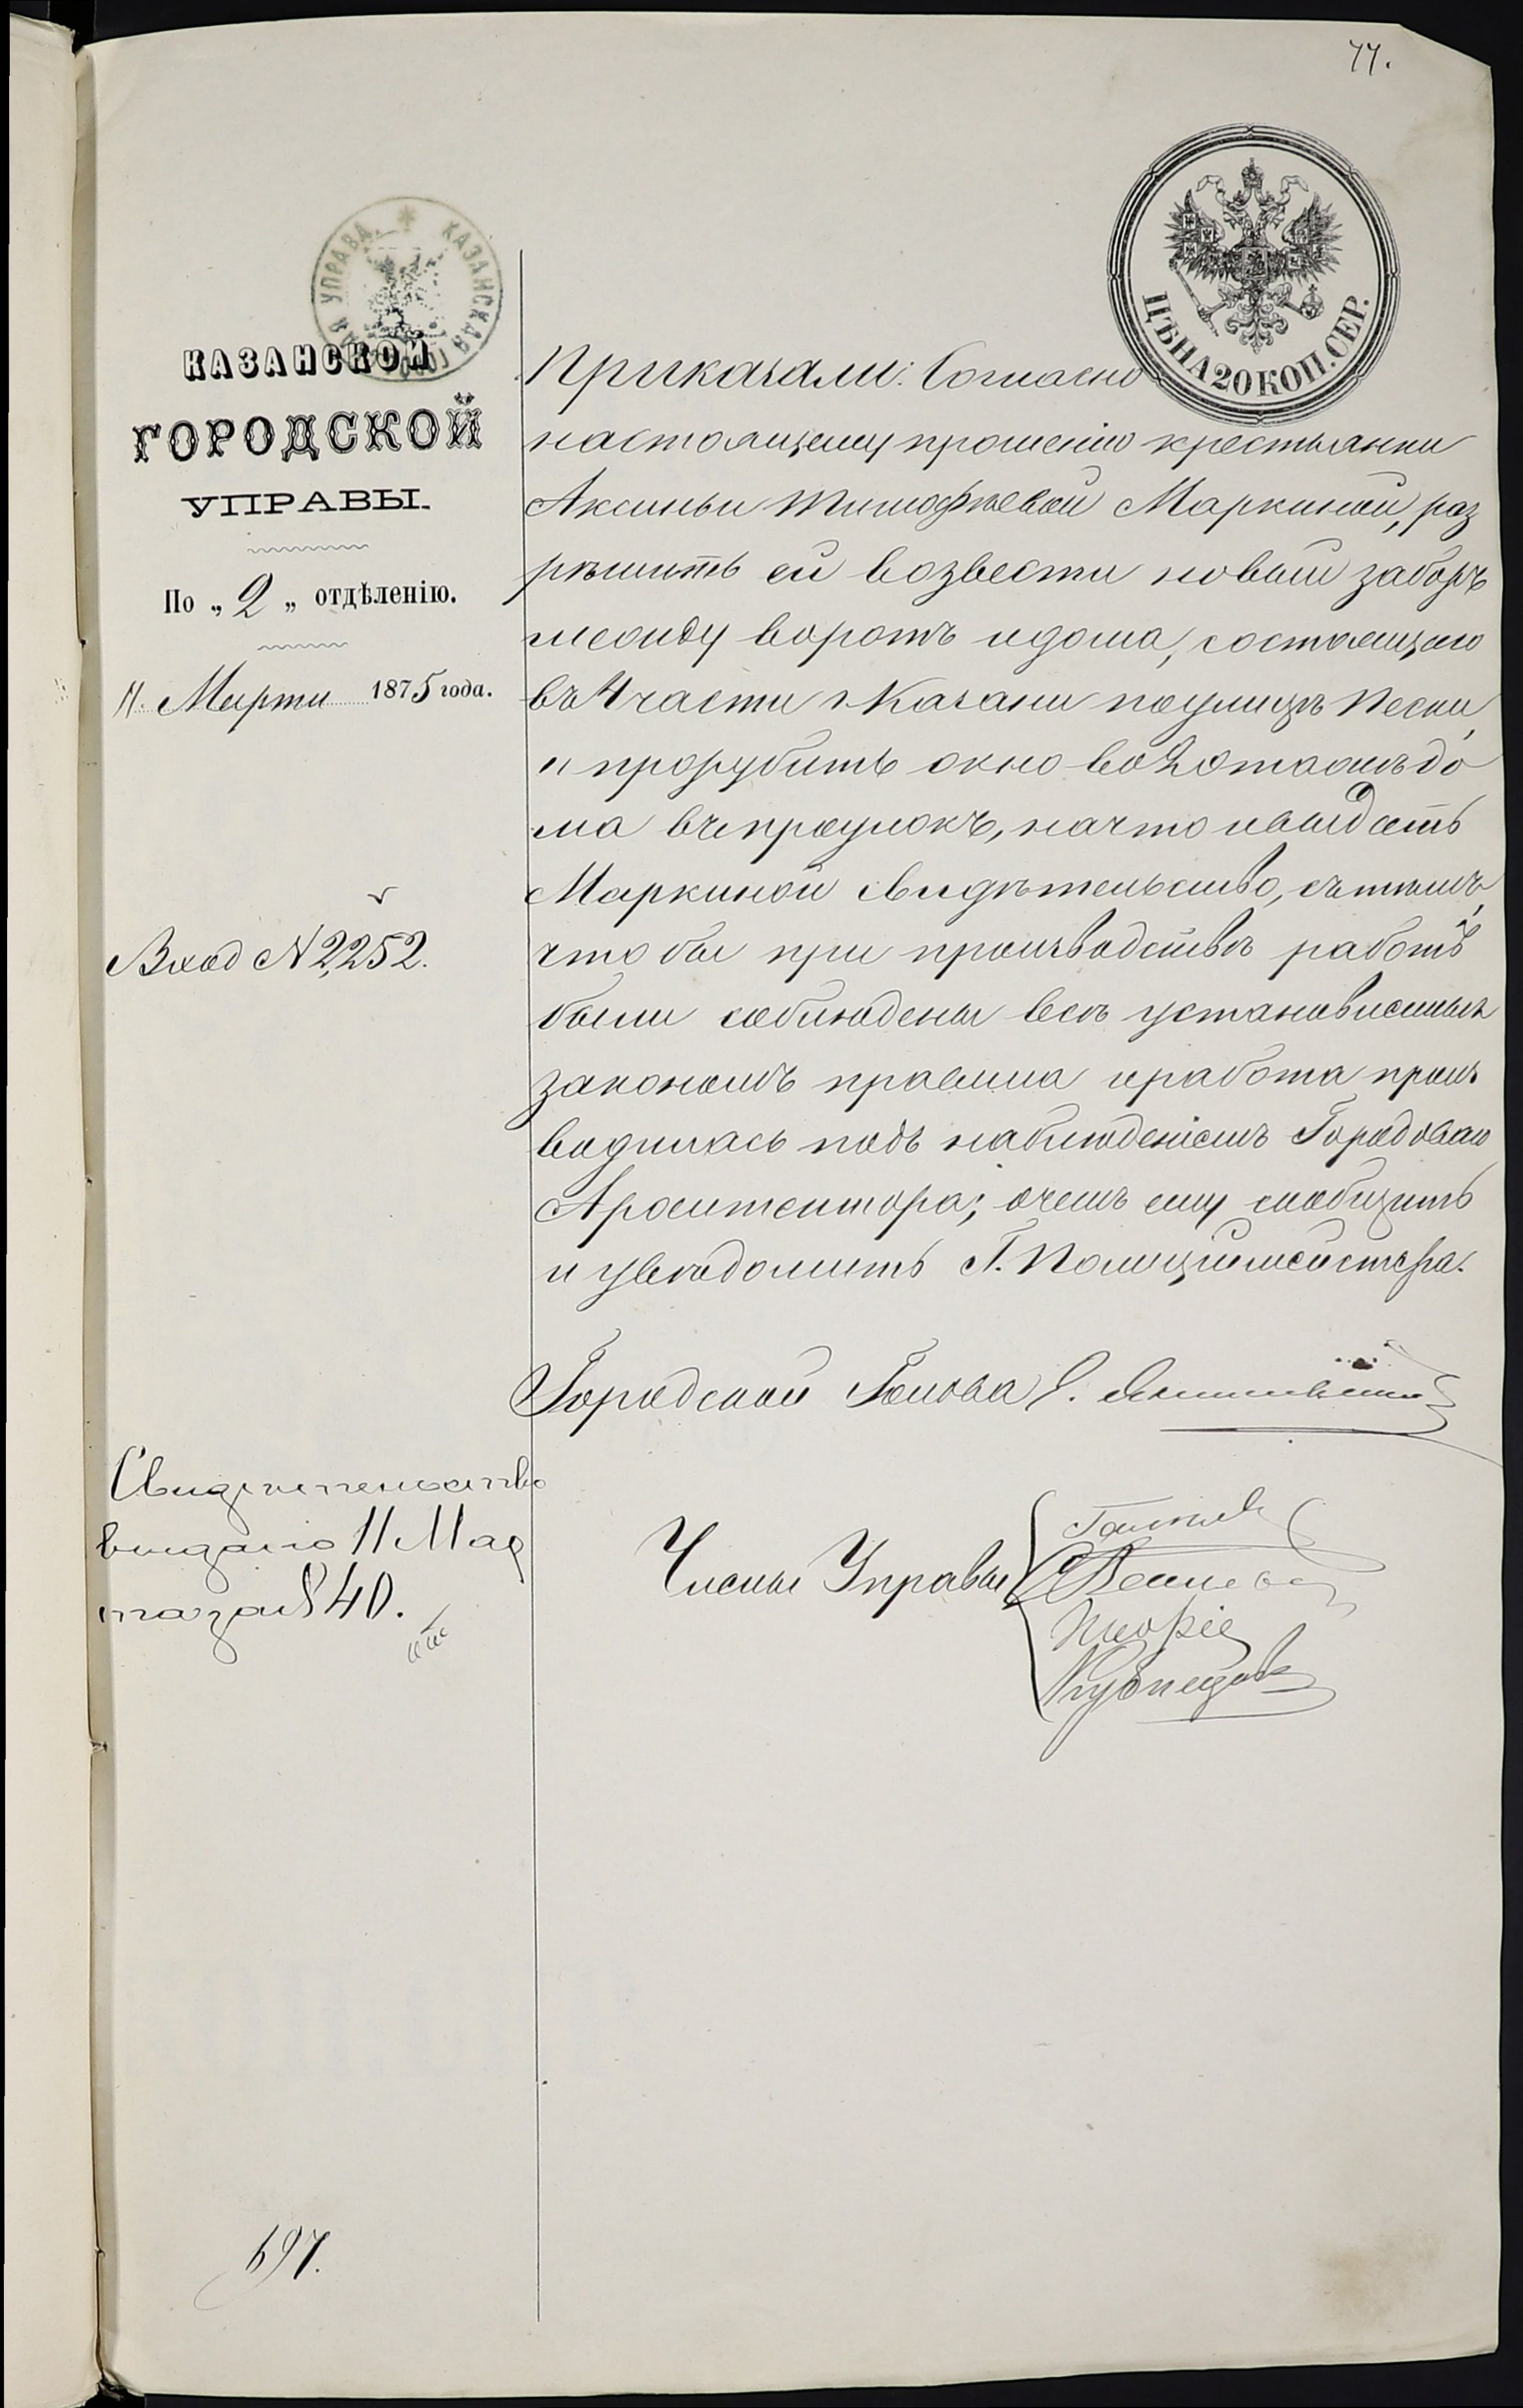 77.
КАЗАНСКАЯ УПРАВА
ЦѢНА 20 КОП. СЕР.
КАЗАНСКОЙ
ГОРОДСКОЙ
УПРАВЫ.
По „2„ отдѣленію.
11 Марта 1875 года.
Вход N 2,252.
Свидетельство
выдано 11 Мар
та за N 840.
697.
Приказали: Согласно
настоящему прошенію крестьянки
Аксиньи Тимофѣевой Маркиной, раз
рѣшить ей возвести новый заборъ
между воротъ и дома, состоящаго
въ 4 части г. Казани по улицѣ Пески,
и прорубить окно во 2 этажѣ до
ма въ проулокъ, на что и выдать
Маркиной свидѣтельство, съ тѣмъ,
что бы при производствѣ работъ
были соблюдены всѣ установленныя
закономъ правила и работа произ
водилась подъ наблюденіемъ Городоваго
Архитектора; о чемъ ему сообщить
и увѣдомить Г. Полиціймейстера.
Городской Голова Э. Янишевскій
Члены Управы
Кузнецов